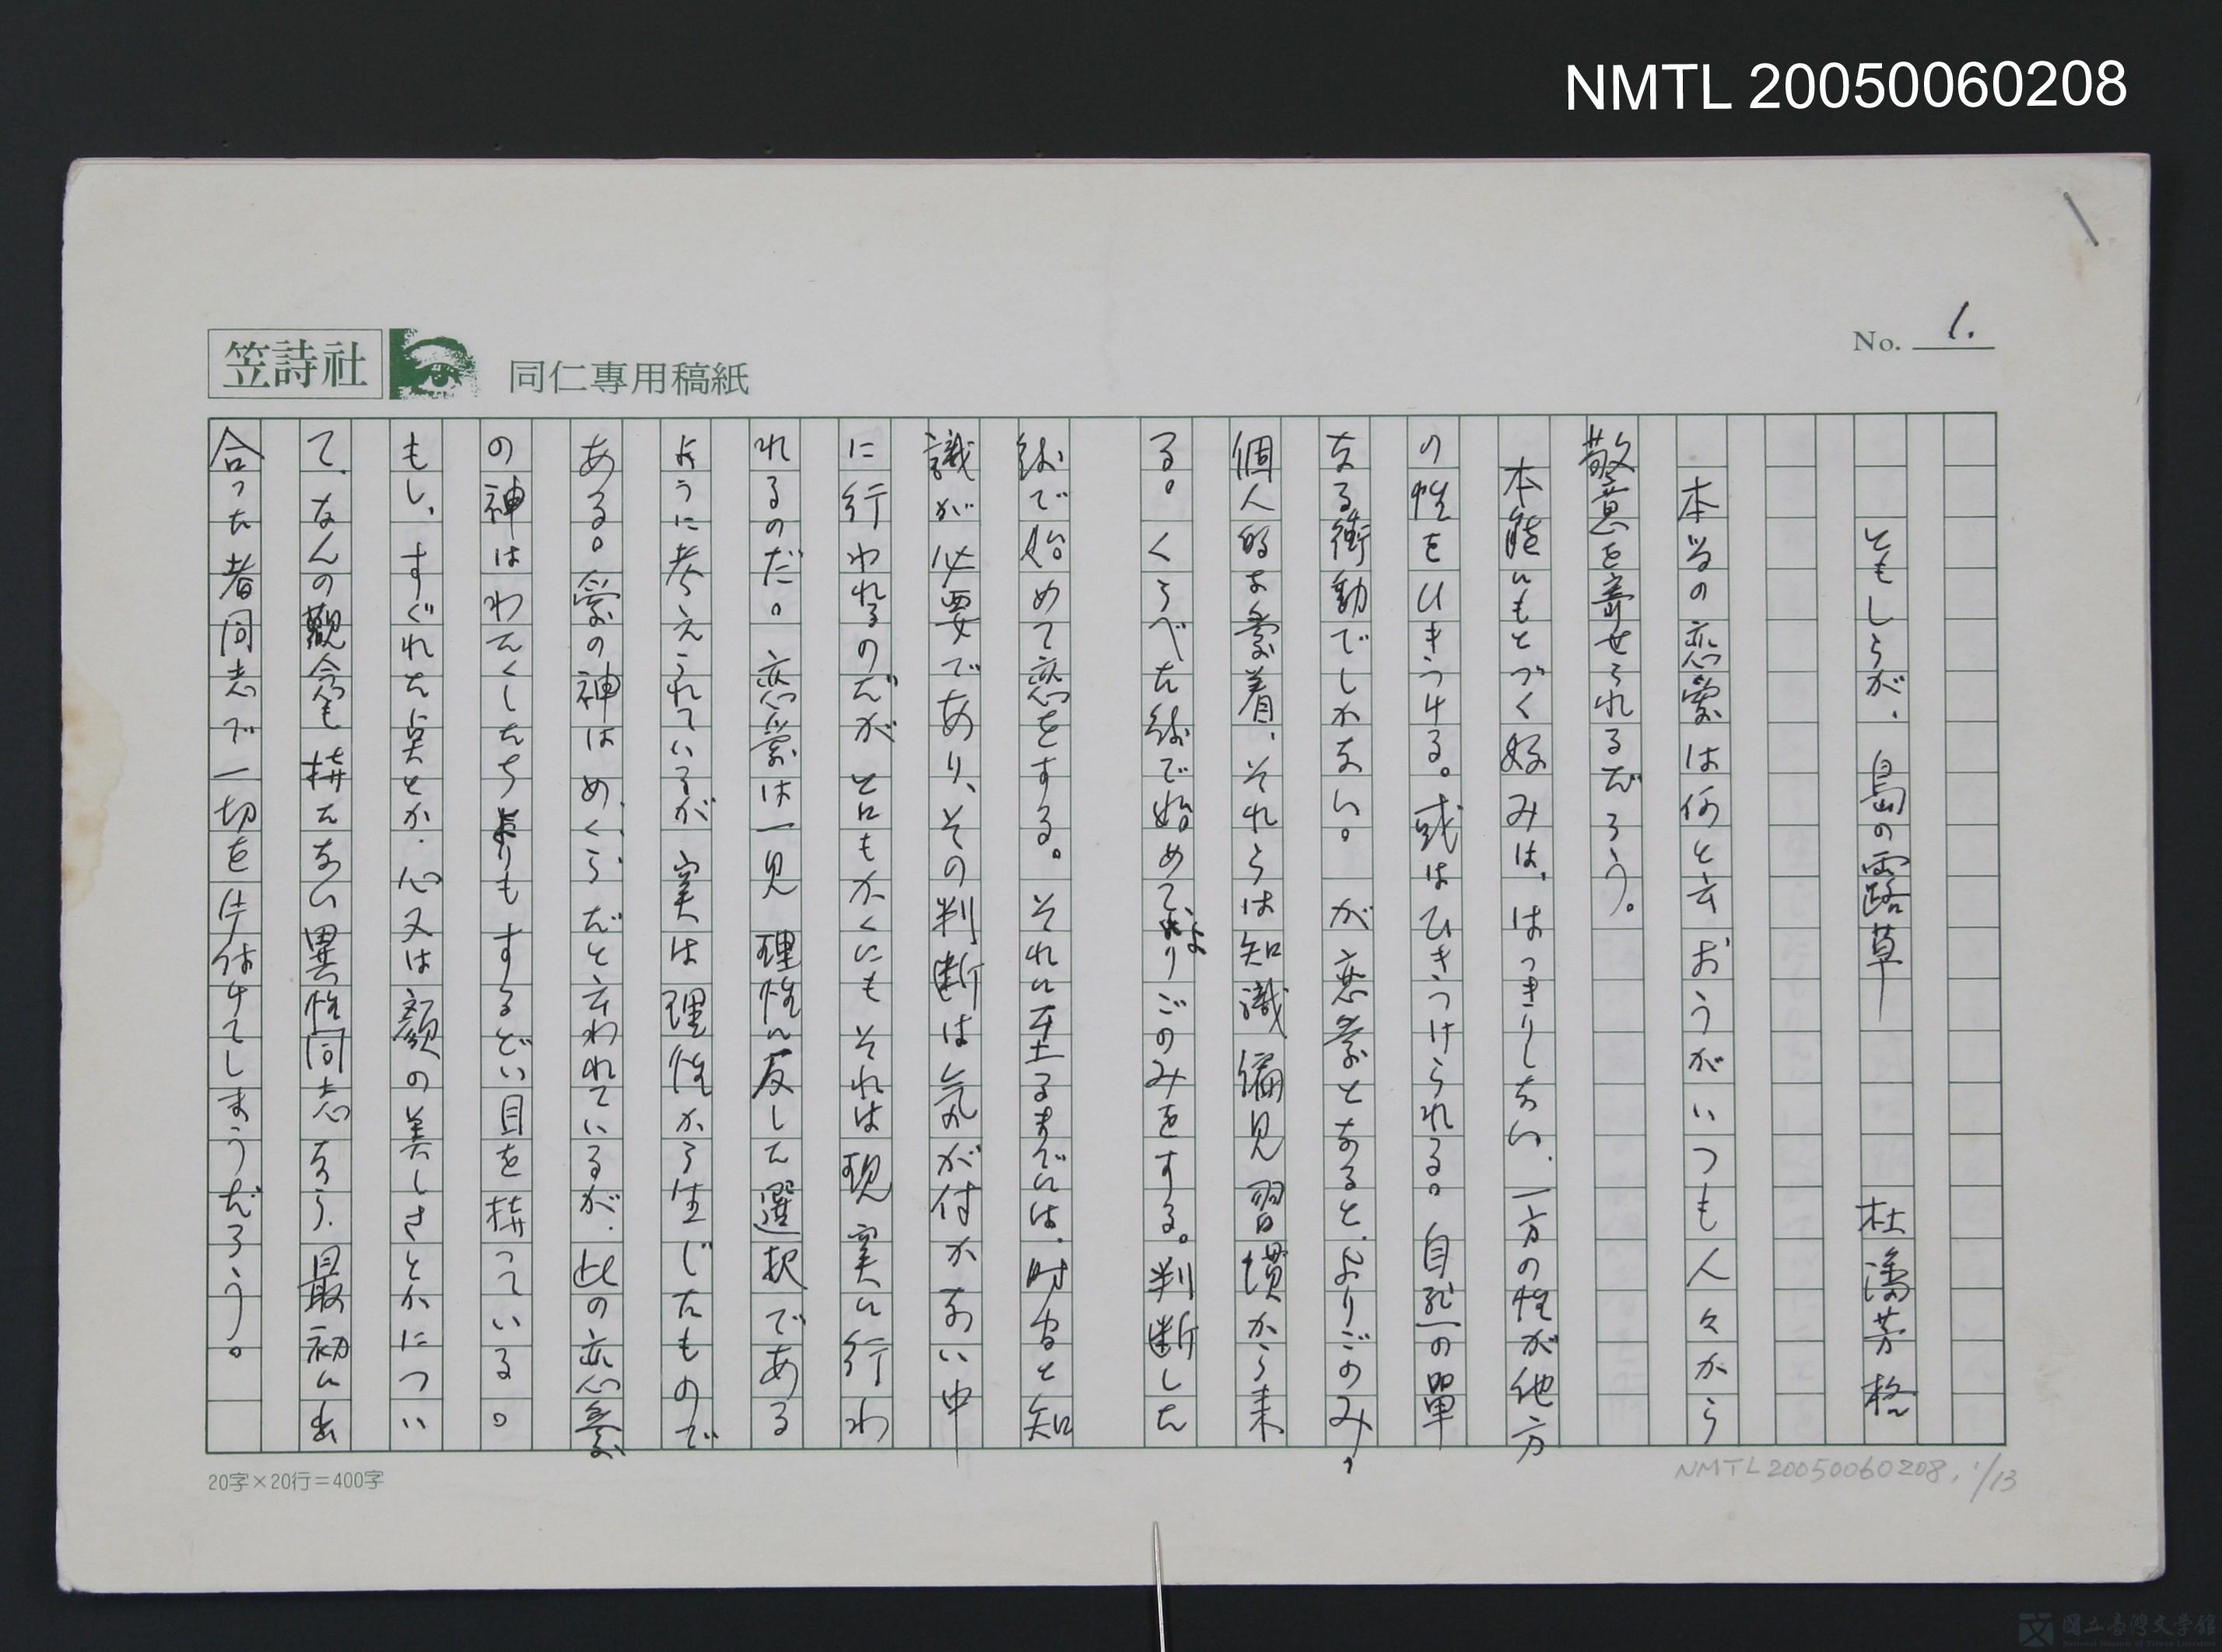 NMTL 20050060208
No. 1.
笠詩社
同仁專用稿紙
ともしらが、島の露路草
杜潘芳格
本当の恋愛は何と云おうがいつも人々から
敬意を寄せられるだろう。
本能にもとづく好みは、はっきりしない、一方の性が他方
の性をひきうける。或はひきつけられる。自然の單
なる衝動でしかない。が恋愛となると、よりごのみ、
個人的な愛着、それらは知識 偏見 習慣から来
る。くらべた後で始めてよりごのみをする。判断した
後で始めて恋をする。それに至るまでには、時間と知
識が必要であり、その判断は気が付かない中
に行われるのだが とにもかくにも それは現実に行わ
れるのだ。恋愛は一見 理性に反した選択である
ように考えられているが 実は理性から生じたもので
ある。愛の神はめくらだと云われているが、此の恋愛
の神はわたくしたちよりもするどい目を持っている。
もし、すぐれた点とか、心又は顔の美しさとかについ
て、なんの觀念も持たない異性同志なら、最初に出
合った者同志で一切を片付けてしまうだろう。
20字×20行=400字
NMTL20050060208, 1/13
國立臺灣文學館